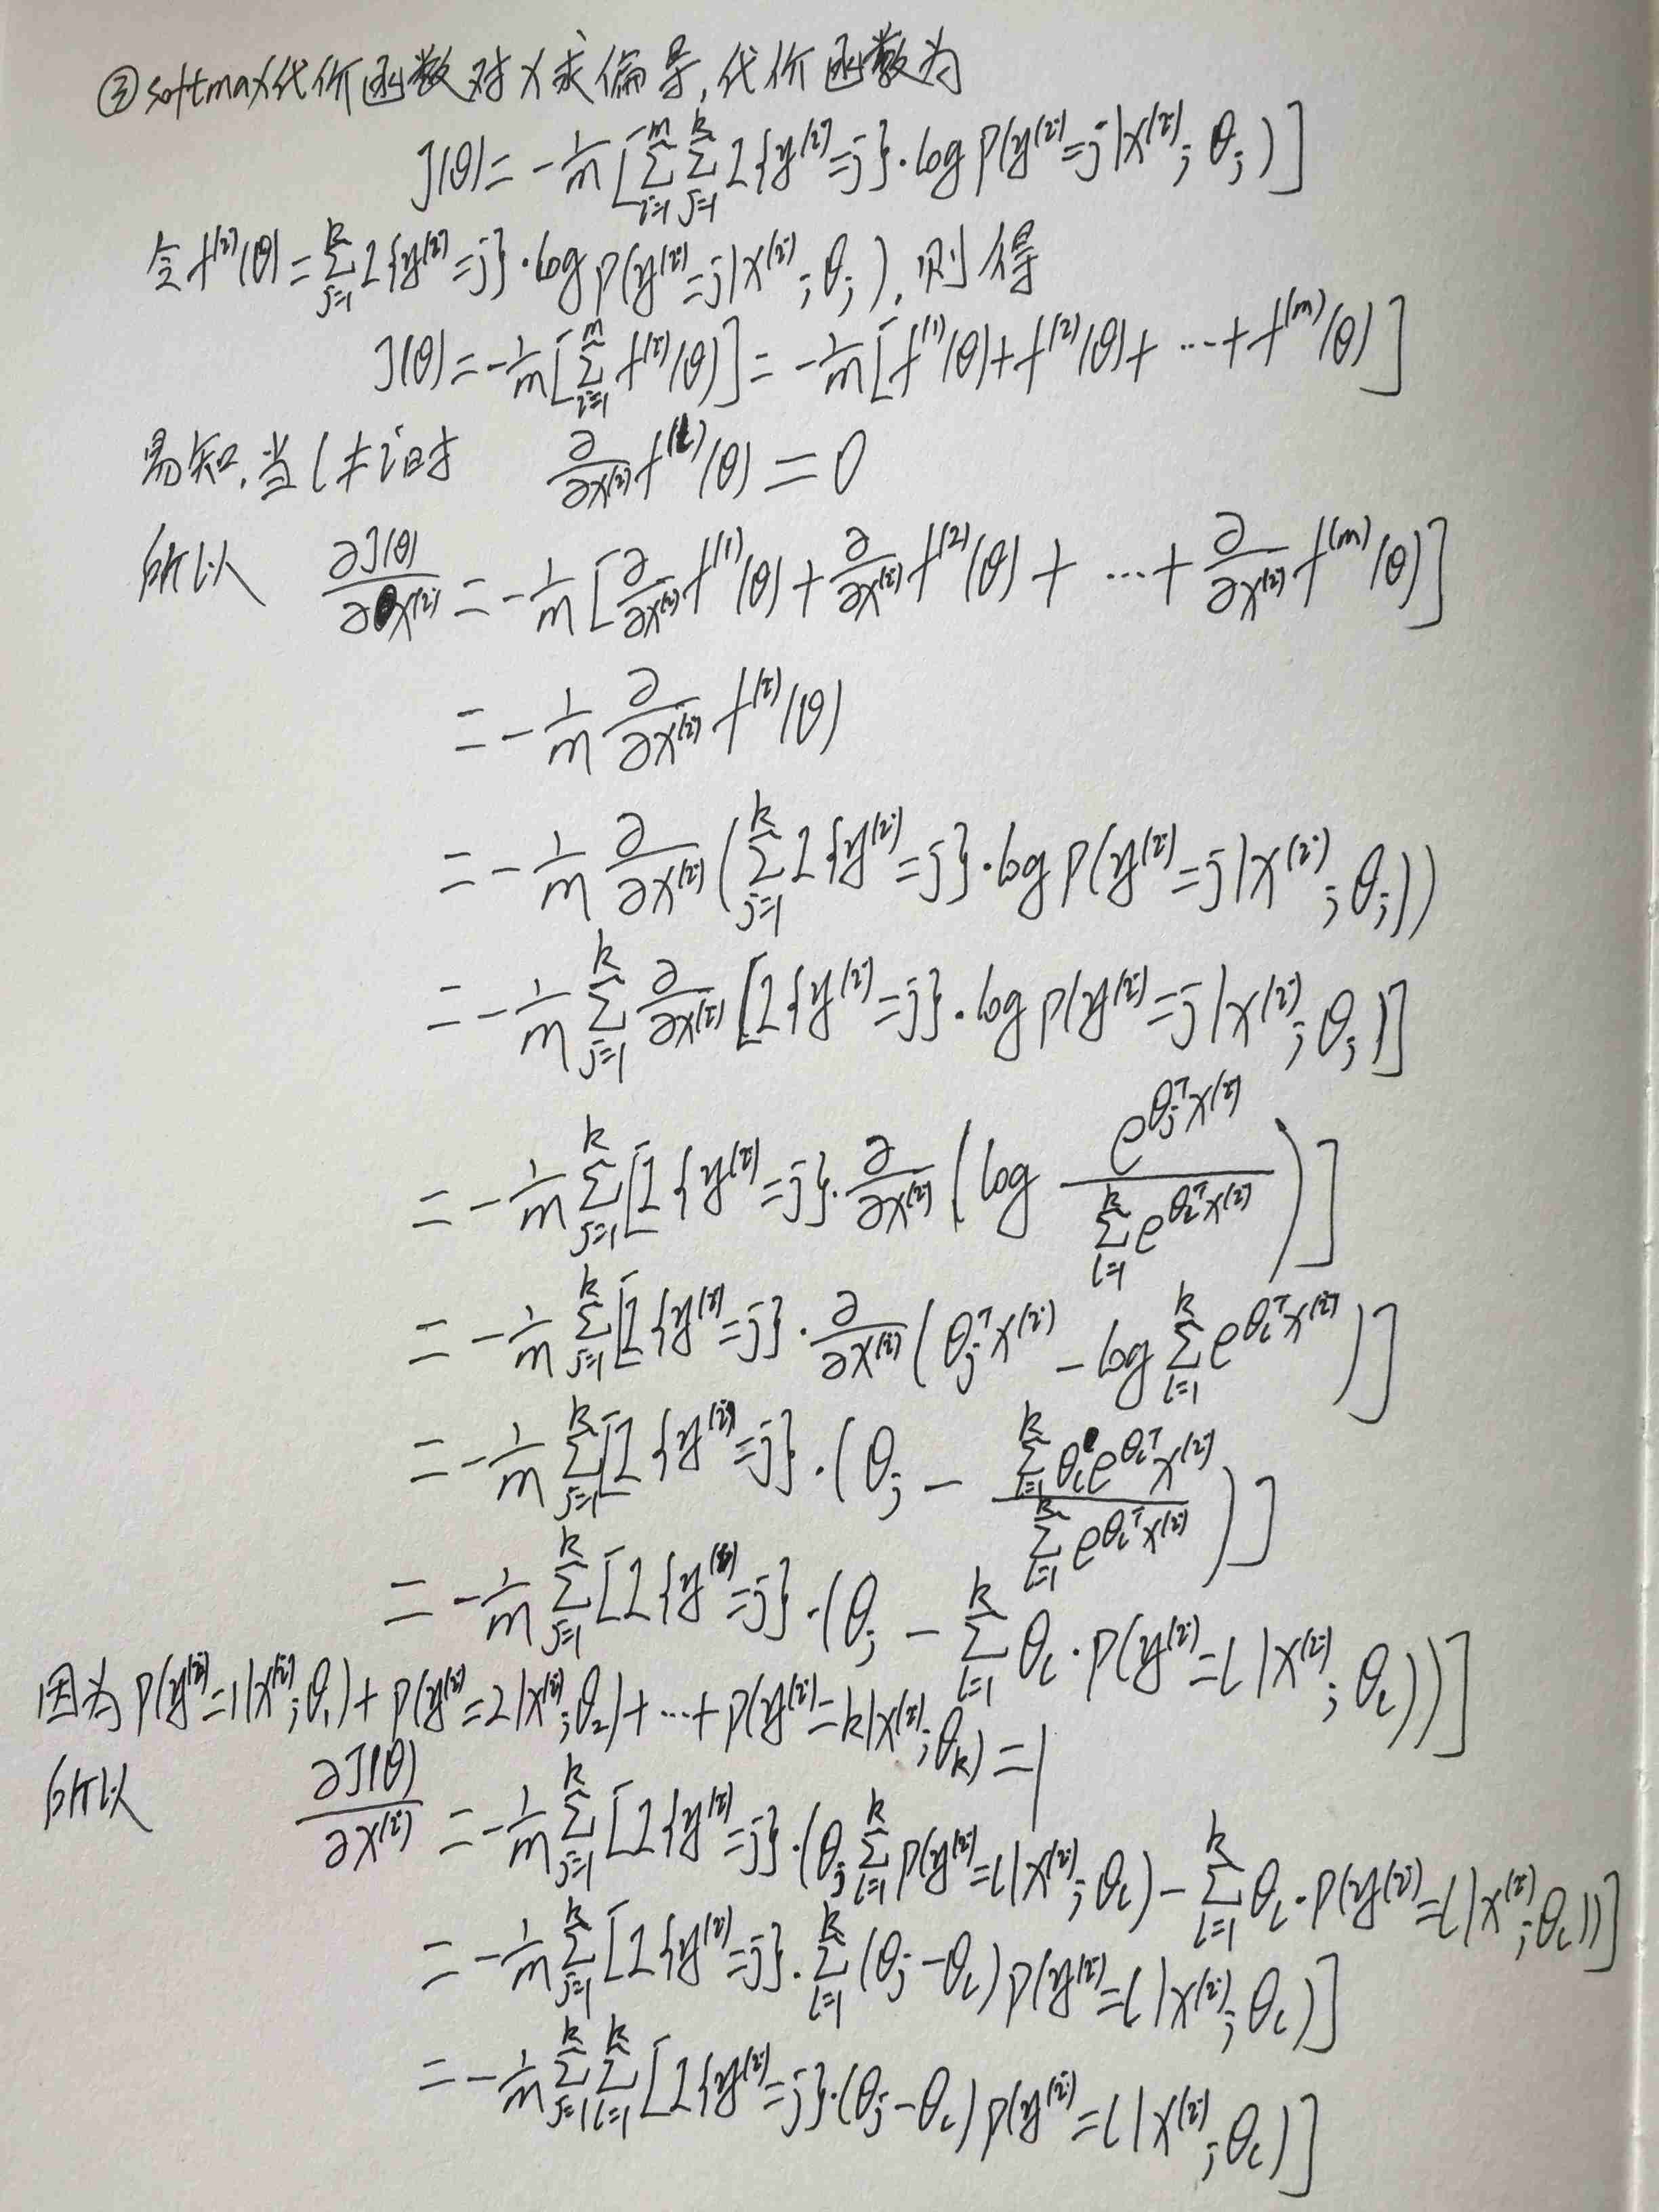 ③softmax代价函数对x求偏导,代价函数为
J(θ)=-1/m[∑_{i=1}^{m}∑_{j=1}^{k}1{y^{(i)}=j}·log p(y^{(i)}=j|x^{(i)};θ_j)]
令f^{(i)}(θ)=∑_{j=1}^{k}1{y^{(i)}=j}·log p(y^{(i)}=j|x^{(i)};θ_j),则得
J(θ)=-1/m[∑_{i=1}^{m}f^{(i)}(θ)]=-1/m[f^{(1)}(θ)+f^{(2)}(θ)+…+f^{(m)}(θ)]
易知,当l≠i时 ∂/∂x^{(i)} f^{(l)}(θ)=0
所以 ∂J(θ)/∂x^{(i)}=-1/m[∂/∂x^{(i)} f^{(1)}(θ)+∂/∂x^{(i)} f^{(2)}(θ)+…+∂/∂x^{(i)} f^{(m)}(θ)]
=-1/m ∂/∂x^{(i)} f^{(i)}(θ)
=-1/m ∂/∂x^{(i)}(∑_{j=1}^{k}1{y^{(i)}=j}·log p(y^{(i)}=j|x^{(i)};θ_j))
=-1/m ∑_{j=1}^{k} ∂/∂x^{(i)}[1{y^{(i)}=j}·log p(y^{(i)}=j|x^{(i)};θ_j)]
=-1/m ∑_{j=1}^{k}[1{y^{(i)}=j}·∂/∂x^{(i)}(log e^{θ_j^T x^{(i)}}/∑_{l=1}^{k}e^{θ_l^T x^{(i)}})]
=-1/m ∑_{j=1}^{k}[1{y^{(i)}=j}·∂/∂x^{(i)}(θ_j^T x^{(i)}-log∑_{l=1}^{k}e^{θ_l^T x^{(i)}})]
=-1/m ∑_{j=1}^{k}[1{y^{(i)}=j}·(θ_j-∑_{l=1}^{k}θ_l e^{θ_l^T x^{(i)}}/∑_{l=1}^{k}e^{θ_l^T x^{(i)}})]
=-1/m ∑_{j=1}^{k}[1{y^{(i)}=j}·(θ_j-∑_{l=1}^{k}θ_l·p(y^{(i)}=l|x^{(i)};θ_l))]
因为p(y^{(i)}=1|x^{(i)};θ_1)+p(y^{(i)}=2|x^{(i)};θ_2)+…+p(y^{(i)}=k|x^{(i)};θ_k)=1
所以 ∂J(θ)/∂x^{(i)}=-1/m ∑_{j=1}^{k}[1{y^{(i)}=j}·(θ_j∑_{l=1}^{k}p(y^{(i)}=l|x^{(i)};θ_l)-∑_{l=1}^{k}θ_l·p(y^{(i)}=l|x^{(i)};θ_l))]
=-1/m ∑_{j=1}^{k}[1{y^{(i)}=j}·∑_{l=1}^{k}(θ_j-θ_l)p(y^{(i)}=l|x^{(i)};θ_l)]
=-1/m ∑_{j=1}^{k}∑_{l=1}^{k}[1{y^{(i)}=j}·(θ_j-θ_l)p(y^{(i)}=l|x^{(i)};θ_l)]